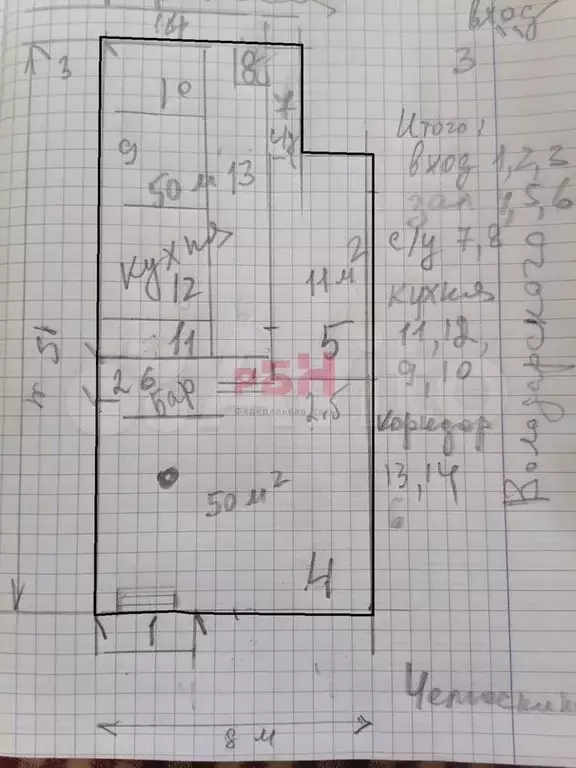 вход
3
14
3
8
10
7
Итого:
9
14
вход 1,2,3
50 м
13
зал 4,5,6
с/у 7,8
кухня
12
11 м²
кухня
11
5
11, 12,
РБН
9, 10
2 6
Бар
2,5
коридор
50 м²
13, 14
6
4
1
8 м
Володарского